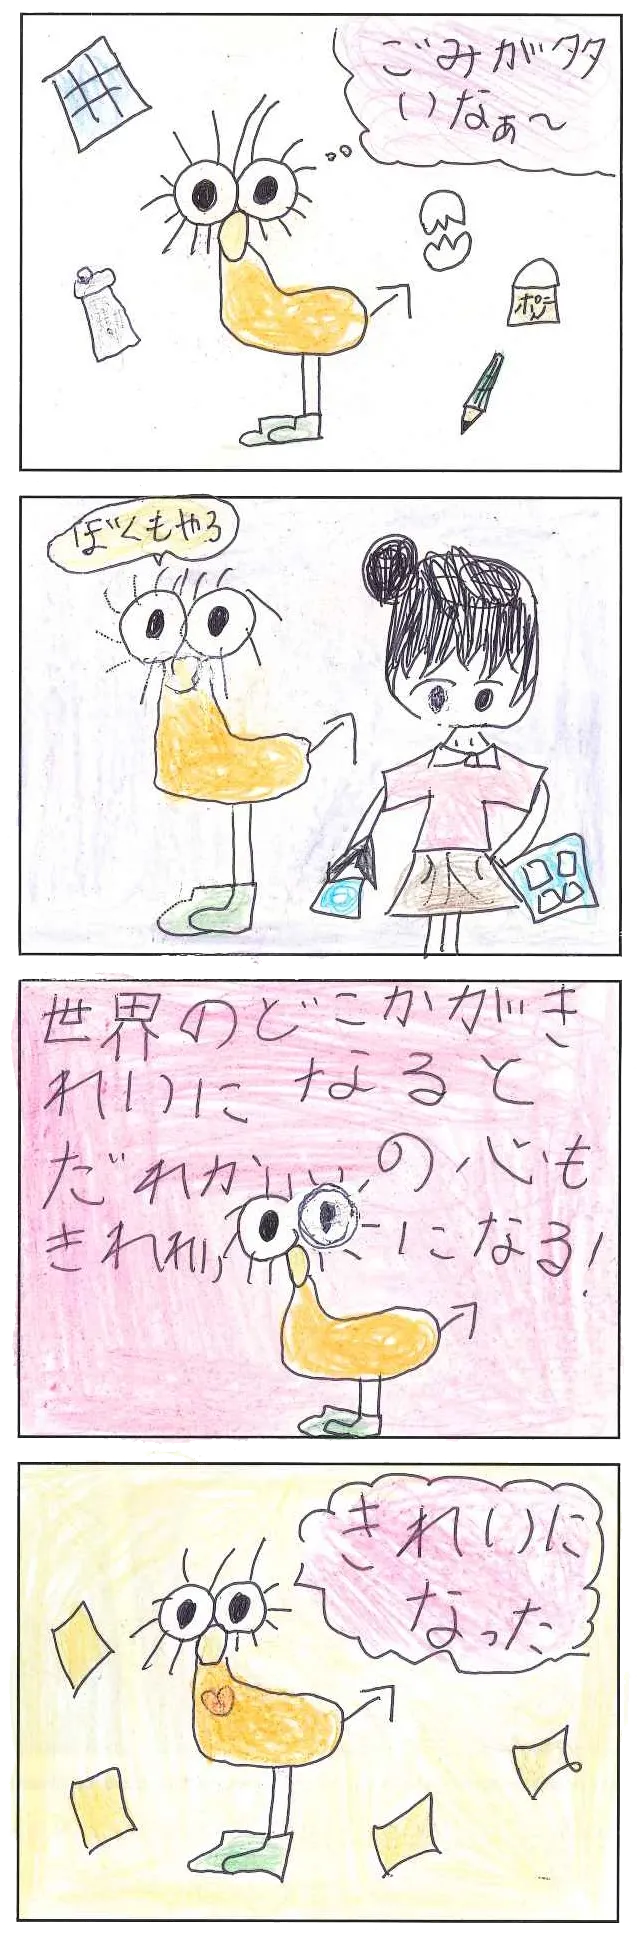 ごみが多
いなぁ〜
ぼくもやろ
世界のどこかがき
れいになると
だれかの心も
きれいになる!
きれいに
なった